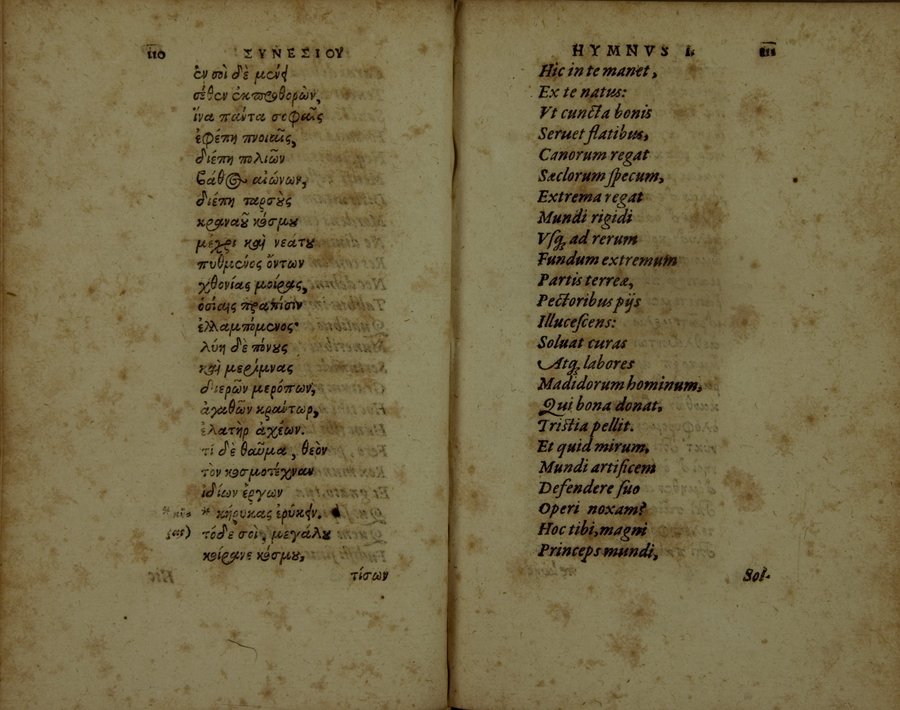 110 ΣΥΝΕΣΙΟΥ
ἐν σοὶ δὲ μένει
σέθεν ἐκπροθορὼν,
ἵνα πάντα σοφαῖς
ἐφέπῃ πνοιαῖς,
διέπῃ πολιῶν
βάθος αἰώνων,
διέπῃ ταρσοὺς
κραναοῦ κόσμου
μέχρι καὶ νεάτου
πυθμένος ὄντων
χθονίας μοίρας,
ὁσίαις πραπίσιν
ἐλλαμπόμενος·
λύῃ δὲ πόνους
καὶ μερίμνας
διερῶν μερόπων,
ἀγαθῶν κράντωρ,
ἐλατὴρ ἀχέων.
τί δὲ θαῦμα, θεὸν
τὸν κοσμοτέχναν
ἰδίων ἔργων
* κῆρας * κήρυκας ἐρύκειν.
τόδε σοὶ, μεγάλου
κοίρανε κόσμου,
τίσων
HYMNVS I. 111
Hic in te manet,
Ex te natus:
Vt cuncta bonis
Seruet flatibus,
Canorum regat
Sæclorum specum,
Extrema regat
Mundi rigidi
Vsq; ad rerum
Fundum extremum
Partis terreæ,
Pectoribus pijs
Illucescens:
Soluat curas
Atq; labores
Madidorum hominum,
Qui bona donat,
Tristia pellit.
Et quid mirum,
Mundi artificem
Defendere suo
Operi noxam?
Hoc tibi, magni
Princeps mundi,
Sol-